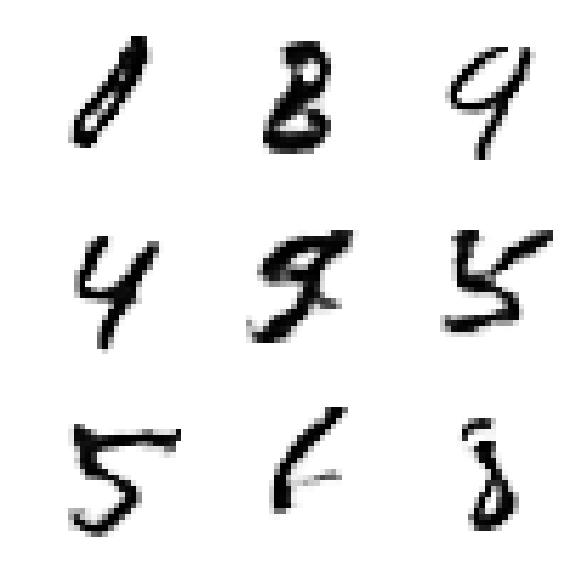 0 8 9
4 9 5
5 6 8